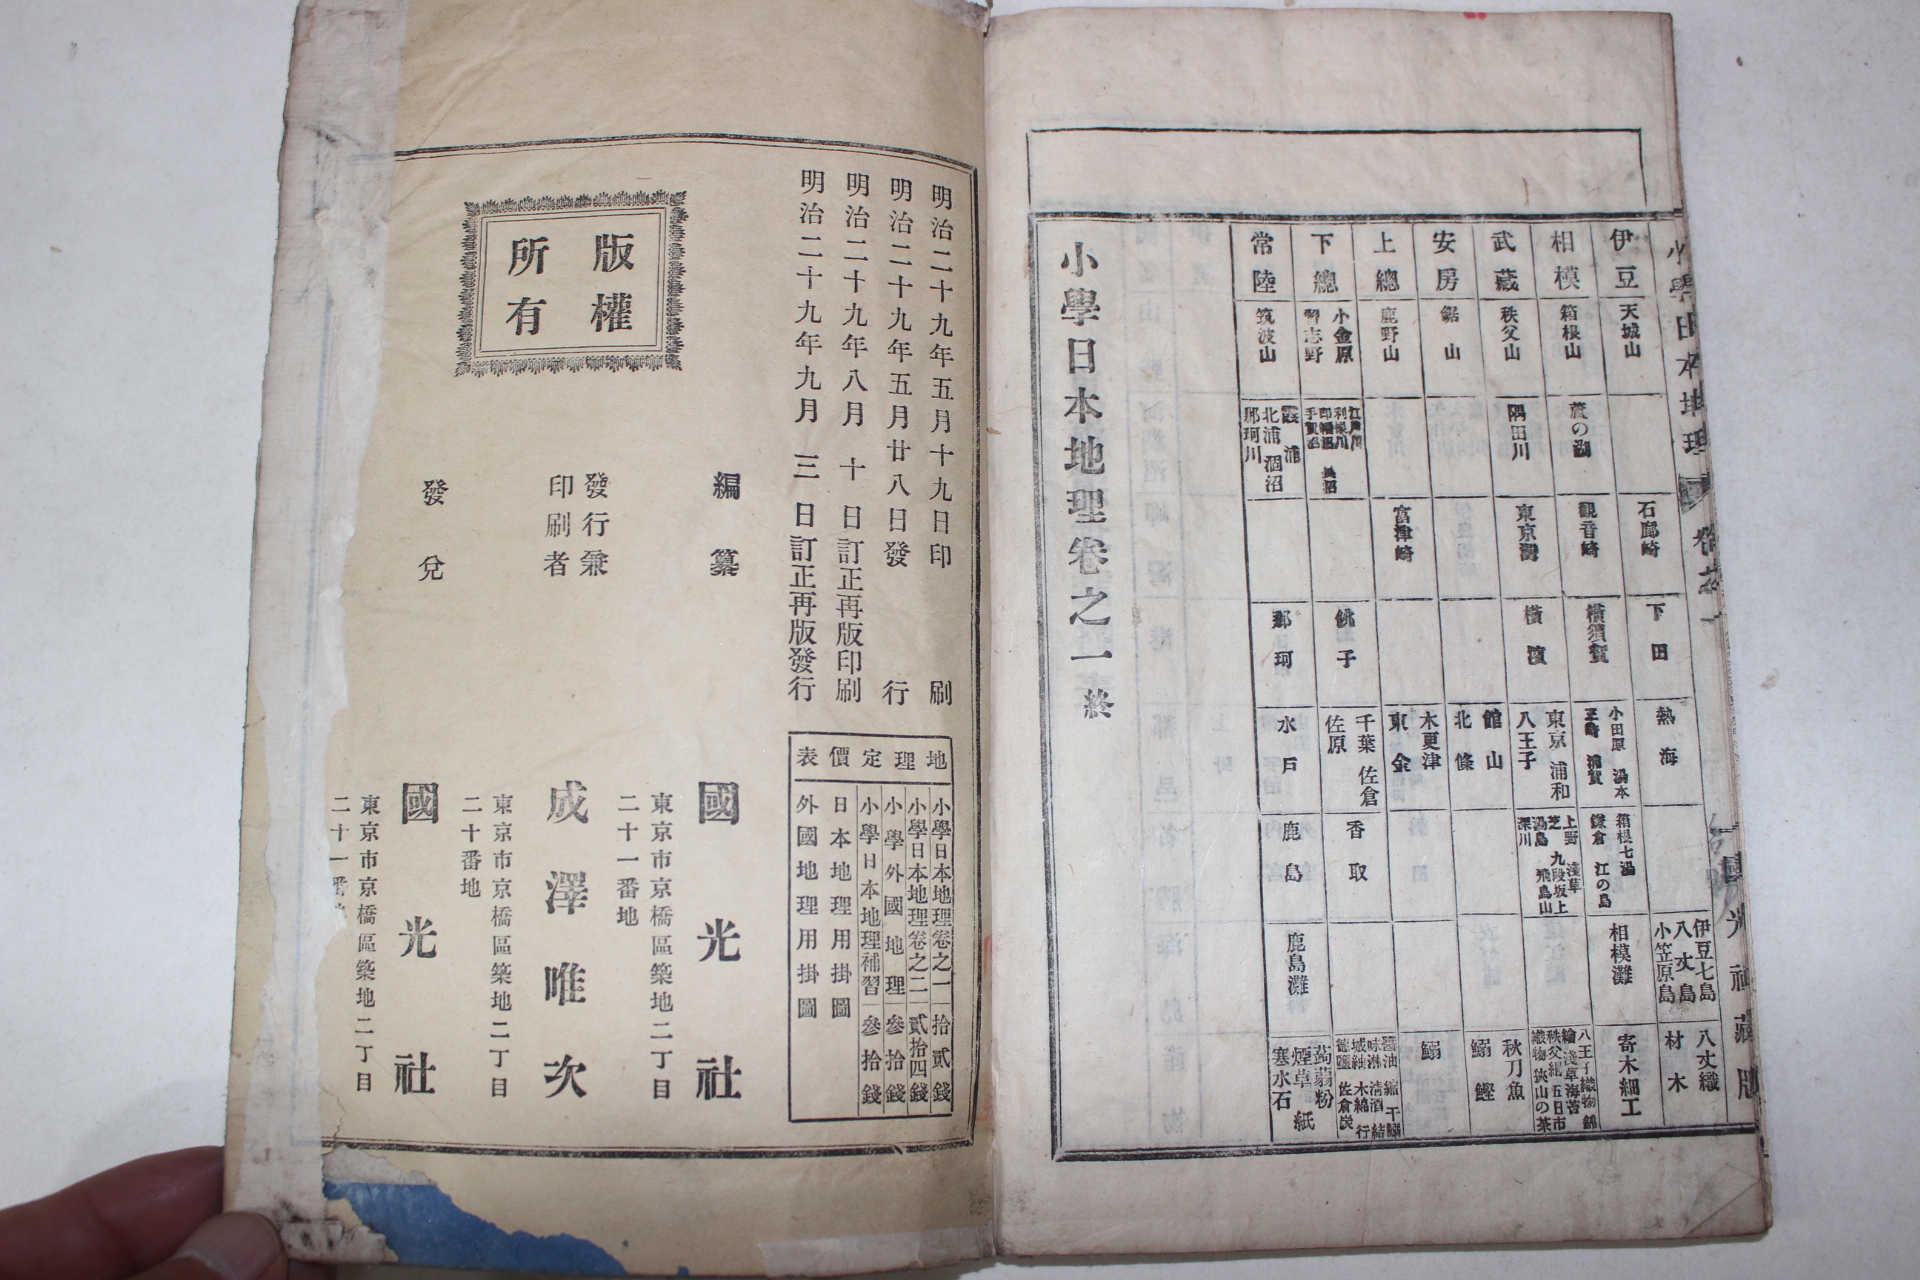 伊豆
天城山
石廊崎
下田
熱海
伊豆七島
八丈島
小笠原島
八丈織
材木
相模
箱根山
蘆の湖
觀音崎
横須賀
小田原 湯本
三崎 浦賀
箱根七湯
鎌倉 江の島
相模灘
寄木細工
武藏
秩父山
隅田川
東京灣
横濱
東京 浦和
八王子
上野 淺草
芝 九段坂上
湯島 飛鳥山
深川
八王子織物
繪 淺草海苔
秩父絹 五日市
織物 狹山の茶
安房
鋸山
館山
北條
秋刀魚
鰯 鰹
上總
鹿野山
富津崎
木更津
東金
鰯
下總
小金原
習志野
江戸川
利根川
印幡沼 長沼
手賀沼
銚子
千葉 佐倉
佐原
香取
常陸
筑波山
霞浦
北浦 涸沼
那珂川
那珂
水戸
鹿島
鹿島灘
蒟蒻粉
煙草 紙
寒水石
小學日本地理卷之一終
明治二十九年五月十九日印刷
明治二十九年五月廿八日發行
明治二十九年八月十日訂正再版印刷
明治二十九年九月三日訂正再版發行
地理定價表
小學日本地理卷之一 拾貳錢
小學日本地理卷之二 貳拾四錢
小學外國地理 參拾錢
小學日本地理補習 參拾錢
日本地理用掛圖
外國地理用掛圖
版權
所有
編纂 國光社
東京市京橋區築地二丁目
二十一番地
發行兼
印刷者 成澤唯次
東京市京橋區築地二丁目
二十番地
發兌 國光社
東京市京橋區築地二丁目
二十一番